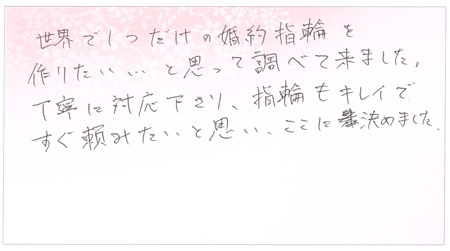 世界で1つだけの婚約指輪を
作りたい…と思って調べて来ました。
丁寧に対応下さり、指輪もキレイで
すぐ頼みたいと思い、ここに決めました。